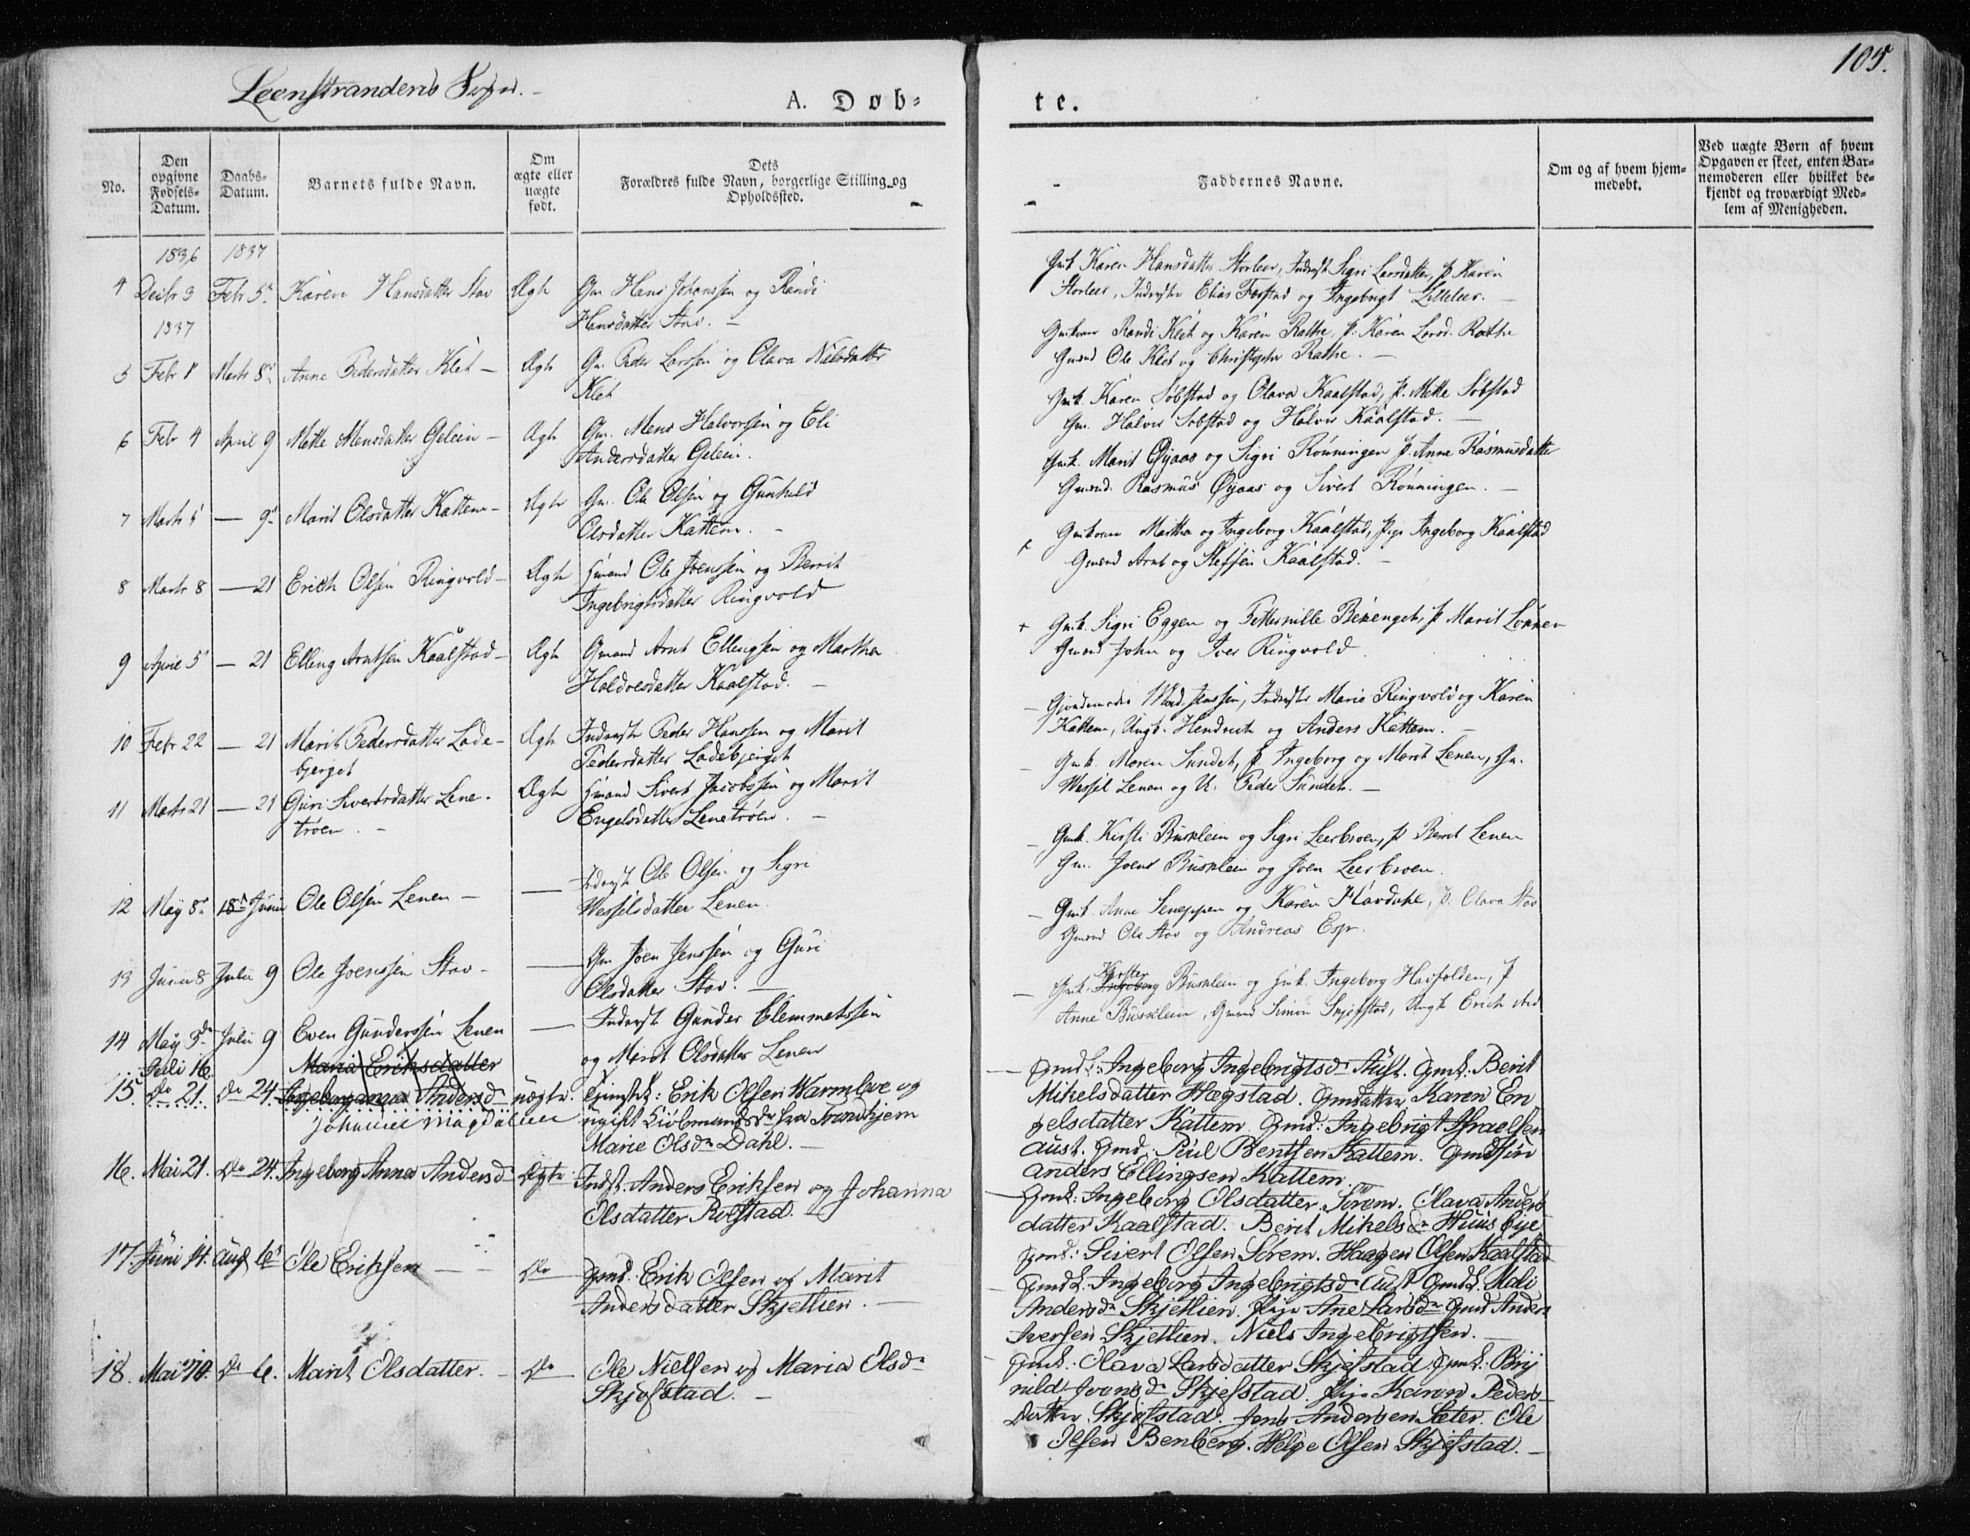 105.
Leenstrandens Sogn. -
A. Døb-
te.
No.
Den
opgivne
Fødsels-
Datum.
Daabs-
Datum.
Barnets fulde Navn.
Om
ægte eller
uægte
født.
Dets
Forældres fulde Navn, borgerlige Stilling og
Opholdssted.
Faddernes Navne.
Om og af hvem hjem-
medøbt.
Ved uægte Børn af hvem
Opgaven er skeet, enten Bar-
nemoderen eller hvilket be-
kjendt og troværdigt Med-
lem af Menigheden.
1836 1837
4 Decbr 3 Febr 5 Karen Hansdatter Stav Ægte Gm Hans Johanssen og Randi
Hansdatter Stav. -
Gmk Karen Hansdatter Storleer, Inderst Sigri Larsdatter, P Karen
Storleer, Inderster Elias Forstad og Ingebrigt Lilleleer. -
1837
5 Febr 1 Marts 8 Anne Pedersdatter Klet - Ægte Gm Peder Larssen og Olava Nilsdatter
Klet
Gmkoner Randi Klet og Karen Rathe, P. Karen Larsd. Rathe
Gmænd Ole Klet og Christopher Rathe. -
6 Febr 4 April 9 Mette Monsdatter Gelein - Ægte Gm. Mons Halvorsen og Eli
Andersdatter Gelein.
Gmk. Karen Sobstad og Olava Kaalstad, P. Mette Sobstad
Gm. Halvor Sobstad og Halvor Kaalstad. -
7 Marts 5 - 9 Marit Olsdatter Kattem - Ægte Gm. Ole Olsen og Gunhild
Olsdatter Kattem. -
Gmk. Marit Øyaas og Sigri Rønningen P. Anne Rasmusdatter
Gmænd. Rasmus Øyaas og Sivert Rønningen. -
8 Marts 8 - 21 Erich Olsen Ringvold - Ægte Hmand Ole Joenssen og Berrit
Ingebrigtsdatter Ringvold
Gmkoner Martha og Ingeborg Kaalstad, Pige Ingeborg Kaalstad
Gmænd Arnt og Steffen Kaalstad. -
9 April 5 - 21 Elling Arntsen Kaalstad - Ægte Gmand Arnt Ellingsen og Martha
Haldosdatter Kaalstad. -
+ Gmk. Sigri Eggen og Petternille P Marit
Gmænd John og Iver Ringvold
10 Febr 22 - 21 Marit Pedersdatter Lade-
bjerget
Ægte Inderst Peder Hanssen og Marit
Pedersdatter Ladebjerget
- Inderster Marie Ringvold og Karen
Kattem, Ungk. Hendrich og Anders Kattem. -
11 Marts 21 - 21 Guri Sivertsdatter Lene-
trøen. -
Ægte Hmand Sivert Jacobssen og Marit
Engelsdatter Lenetrøen. -
- Gmk. Maren Sundet, P Ingeborg og Marit Lenen, Gm.
Wessel Lenen og U. Peder Sundet. -
12 May 8 18 Juni Ole Olsen Lenen - - Inderst Ole Olsen og Sigri
Wesselsdatter Lenen.
- Gmk. Kirsti Busklein og Sigri Leerbroen, P Berrit Lenen
Gm. Joens Busklein og Joen Leerbroen.
13 Juni 8 Juli 9 Ole Joenssen Stav - - Gm Joen Jenssen og Guri
Olsdatter Stav. -
- Gmk. Anne Seneppen og Karen Havdahl, P. Olava Stav
Gmænd Ole Stav og Andreas Esp.
14 May 3 Juli 9 Even Gunderssen Lenen - Inderst Gunder Clemmetssen
og Marit Olsdatter Lenen
- Gmk. Kirsten Ingeborg Busklein og Hmk. Ingeborg Havfolden, P
Anne Busklein, Gmand Simon Skjefstad, Ungk Erich
Juli 16.
15. Do 21. Do 24. Maria Eriksdatter
Ingeborg anna Andersd
Johanne Magdalene
uægte Erik Olsen Warmboe og
ugift Kiøbmandsdr fra Trondhjem
Marie Olsdr Dahl. -
- Gmdk: Ingeborg Ingebrigtsdr Aust. Gmk: Berit
Mikelsdatter Hægstad. Gmdatter Karen En
gelsdatter Kattem. Gmd: Ingebrigt Israelsen
Aust. Gmd: Paul Bentsen Kattem.
Anders Ellingsen Kattem.
16. Mai 21. Do 24. Ingeborg Anna Andersd Ægte Indst. Anders Eriksen og Johanna
Olsdatter Roestad.
- Gmk: Ingeborg Olsdatter Sørem. Olava Anders
datter Kaalstad. Berit Mikelsdr Huusbye
Gmd: Sivert Olsen Sørem. Haagen Olsen Kaalstad
17. Juni 14. Aug 6 Ole Eriksen - - Do Gmd. Erik Olsen og Marit
Andersdatter Skjetlien. -
- Gmdk. Ingeborg Ingebrigtsdr Aust Gmdk. Mali
Andersdr Skjetlien. Pige Ane Larsdr Gmd Anders
Iversen Skjetlien. Niels Ingebrigtsen. -
18. Mai 70. Do 6. Marit Olsdatter. - Do Ole Nielsen og Maria Olsdr
Skjefstad. -
- Gmk: Olava Larsdatter Skjefstad. Gmk: Brÿ
nild Joensdr Skjefstad. Pige Karen Peders
Datter Skjefstad. Jens Andersen Sæter. Ole
Olsen Benberg. Helge Olsen Skjefstad. -